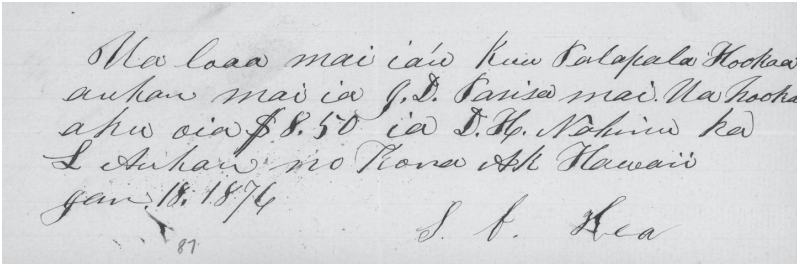 Ua loaa mai ia'u Kuu Palapala Hookaa
auhau mai ia J. D. Parisa mai. Ua hooka
aku oia $8.50 ia D. H. Nahinu ka
L Auhau no Kona Ak Hawaii
Jan. 18. 1876
87
S. Kea